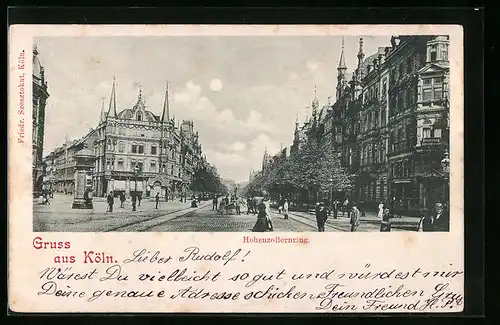 Friedr. Szesztokat, Köln.
Gruss
aus Köln.
Hohenzollernring.
Lieber Rudolf!
Wärest Du vielleicht so gut und würdest mir
Deine genaue Adresse schicken. Freundlichen Gru
Dein Freund H.